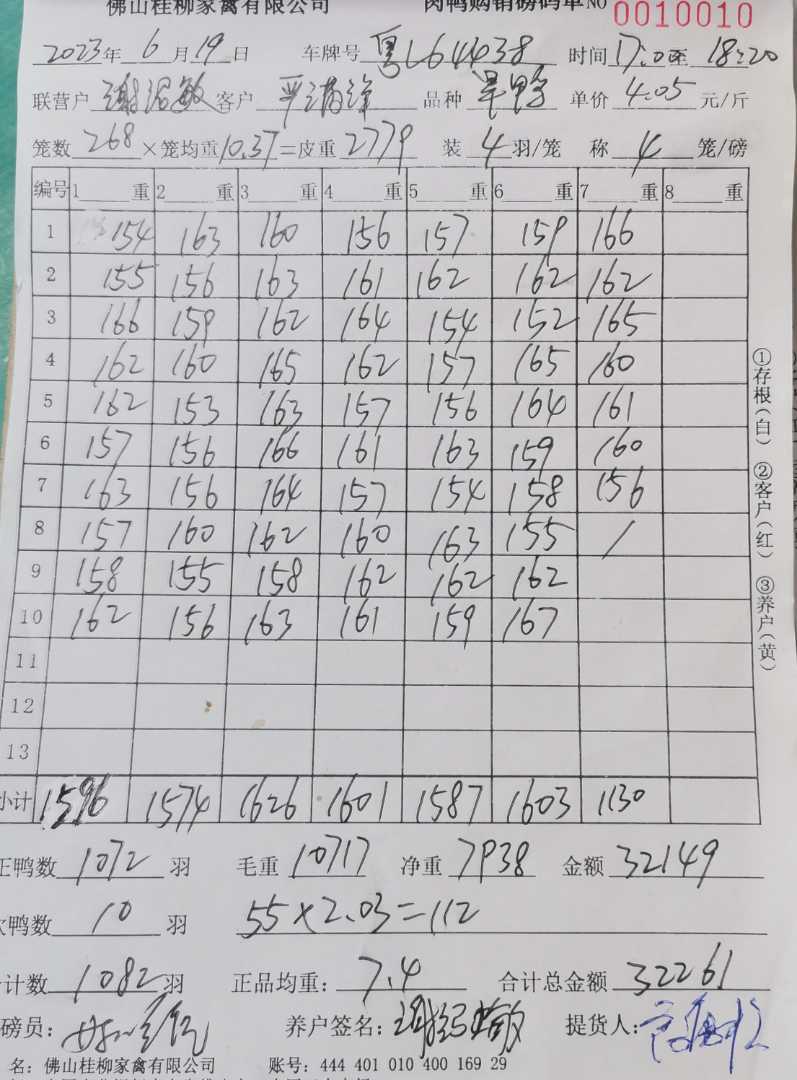 佛山桂柳家禽有限公司 肉鸭购销磅码单 NO 0010010
2023年 6月19日 车牌号 粤L64438 时间 17:0至 18:20
联营户 客户 严满锋 品种 旱鸭 单价 4.05 元/斤
笼数 268 ×笼均重 10.37 =皮重 2779 装 4 羽/笼 称 4 笼/磅
编号 1 重 2 重 3 重 4 重 5 重 6 重 7 重 8 重
1 154 163 160 156 157 159 166
2 155 156 163 161 162 162 162
3 166 159 162 164 154 152 165
4 162 160 165 162 157 165 160
5 162 153 163 157 156 164 161
6 157 156 166 161 163 159 160
7 163 156 164 157 154 158 156
8 157 160 162 160 163 155 /
9 158 155 158 162 162 162
10 162 156 163 161 159 167
11
12
13
小计 1596 1574 1626 1601 1587 1603 1130
①存根(白) ②客户(红) ③养户(黄)
正鸭数 1072 羽 毛重 10717 净重 7938 金额 32149
次鸭数 10 羽 55×2.03=112
合计数 1082 羽 正品均重: 7.4 合计总金额 32261
磅员: 养户签名: 提货人:
名: 佛山桂柳家禽有限公司 账号: 444 401 010 400 169 29